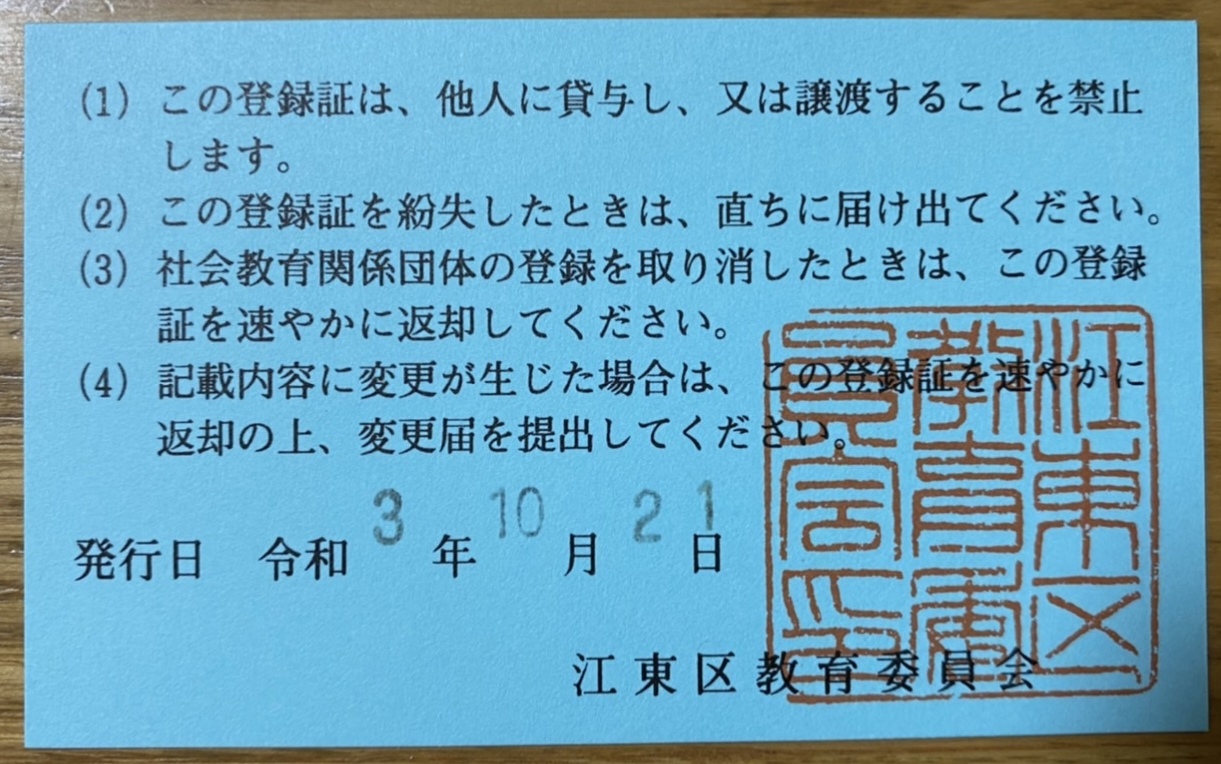 (1) この登録証は、他人に貸与し、又は譲渡することを禁止
します。
(2) この登録証を紛失したときは、直ちに届け出てください。
(3) 社会教育関係団体の登録を取り消したときは、この登録
証を速やかに返却してください。
(4) 記載内容に変更が生じた場合は、この登録証を速やかに
返却の上、変更届を提出してください。
発行日 令和 3 年 10 月 21 日
江東区教育委員会
江東区
教育委
員会印